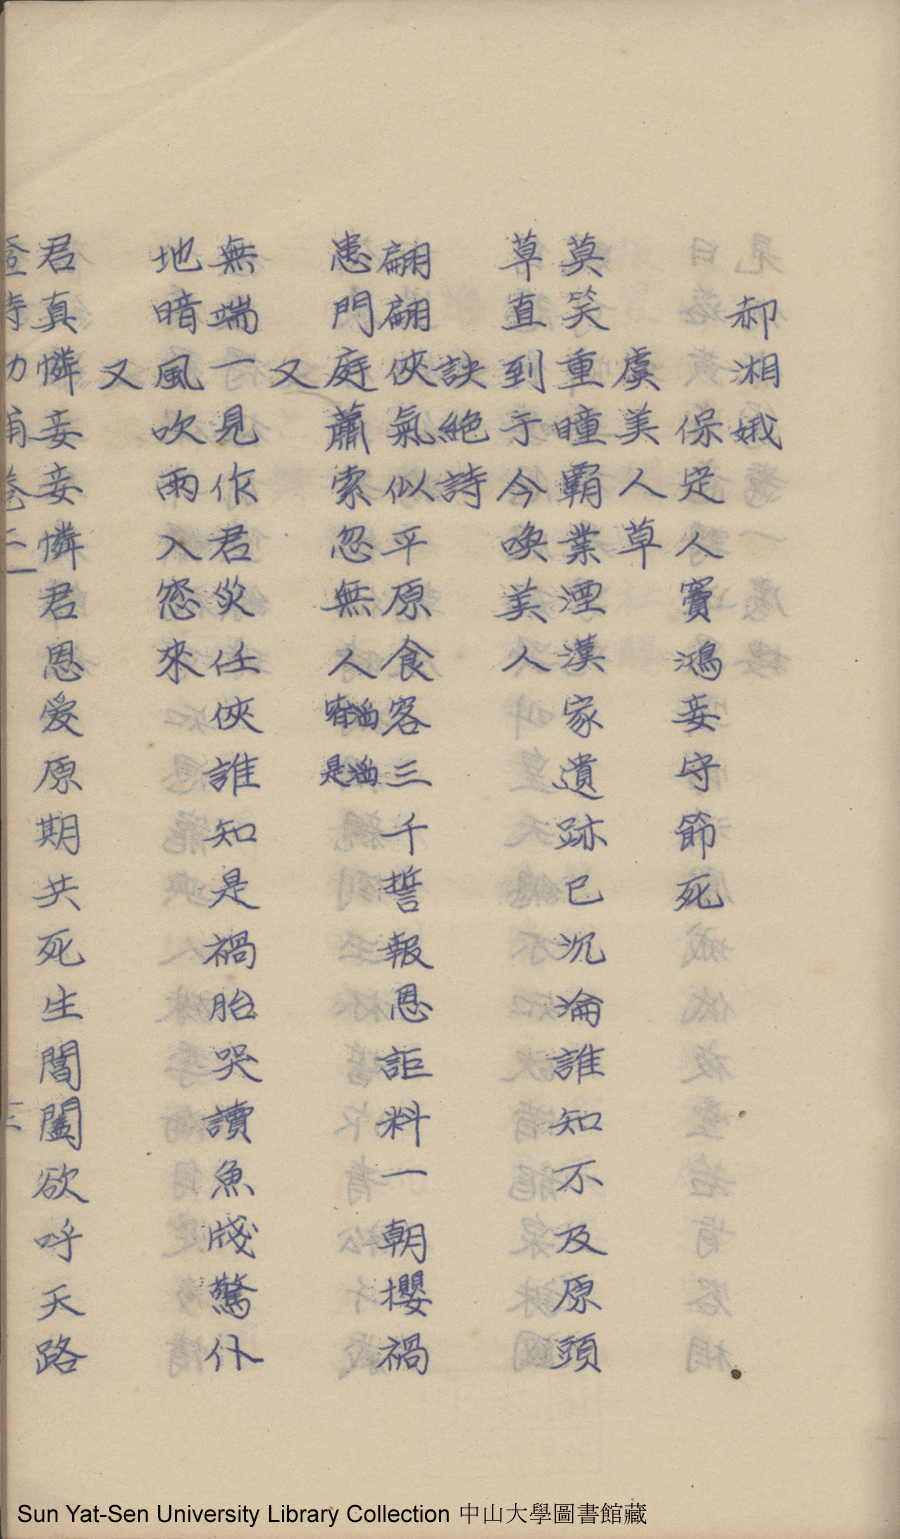 郝湘娥
保定人竇鴻妾守節死
虞美人草
莫笑重瞳霸業湮漢家遺跡已沉淪誰知不及原頭
草直到于今喚美人
訣絕詩
翩翩俠氣似平原食客三千誓報恩詎料一朝攖禍
患門庭蕭索忽無人
又
無端一見作君災任俠誰知是禍胎哭讀魚牋驚仆
地暗風吹雨入窻來
又
君真憐妾妾憐君恩愛原期共死生閶闔欲呼天路
卷二
Sun Yat-Sen University Library Collection 中山大學圖書館藏